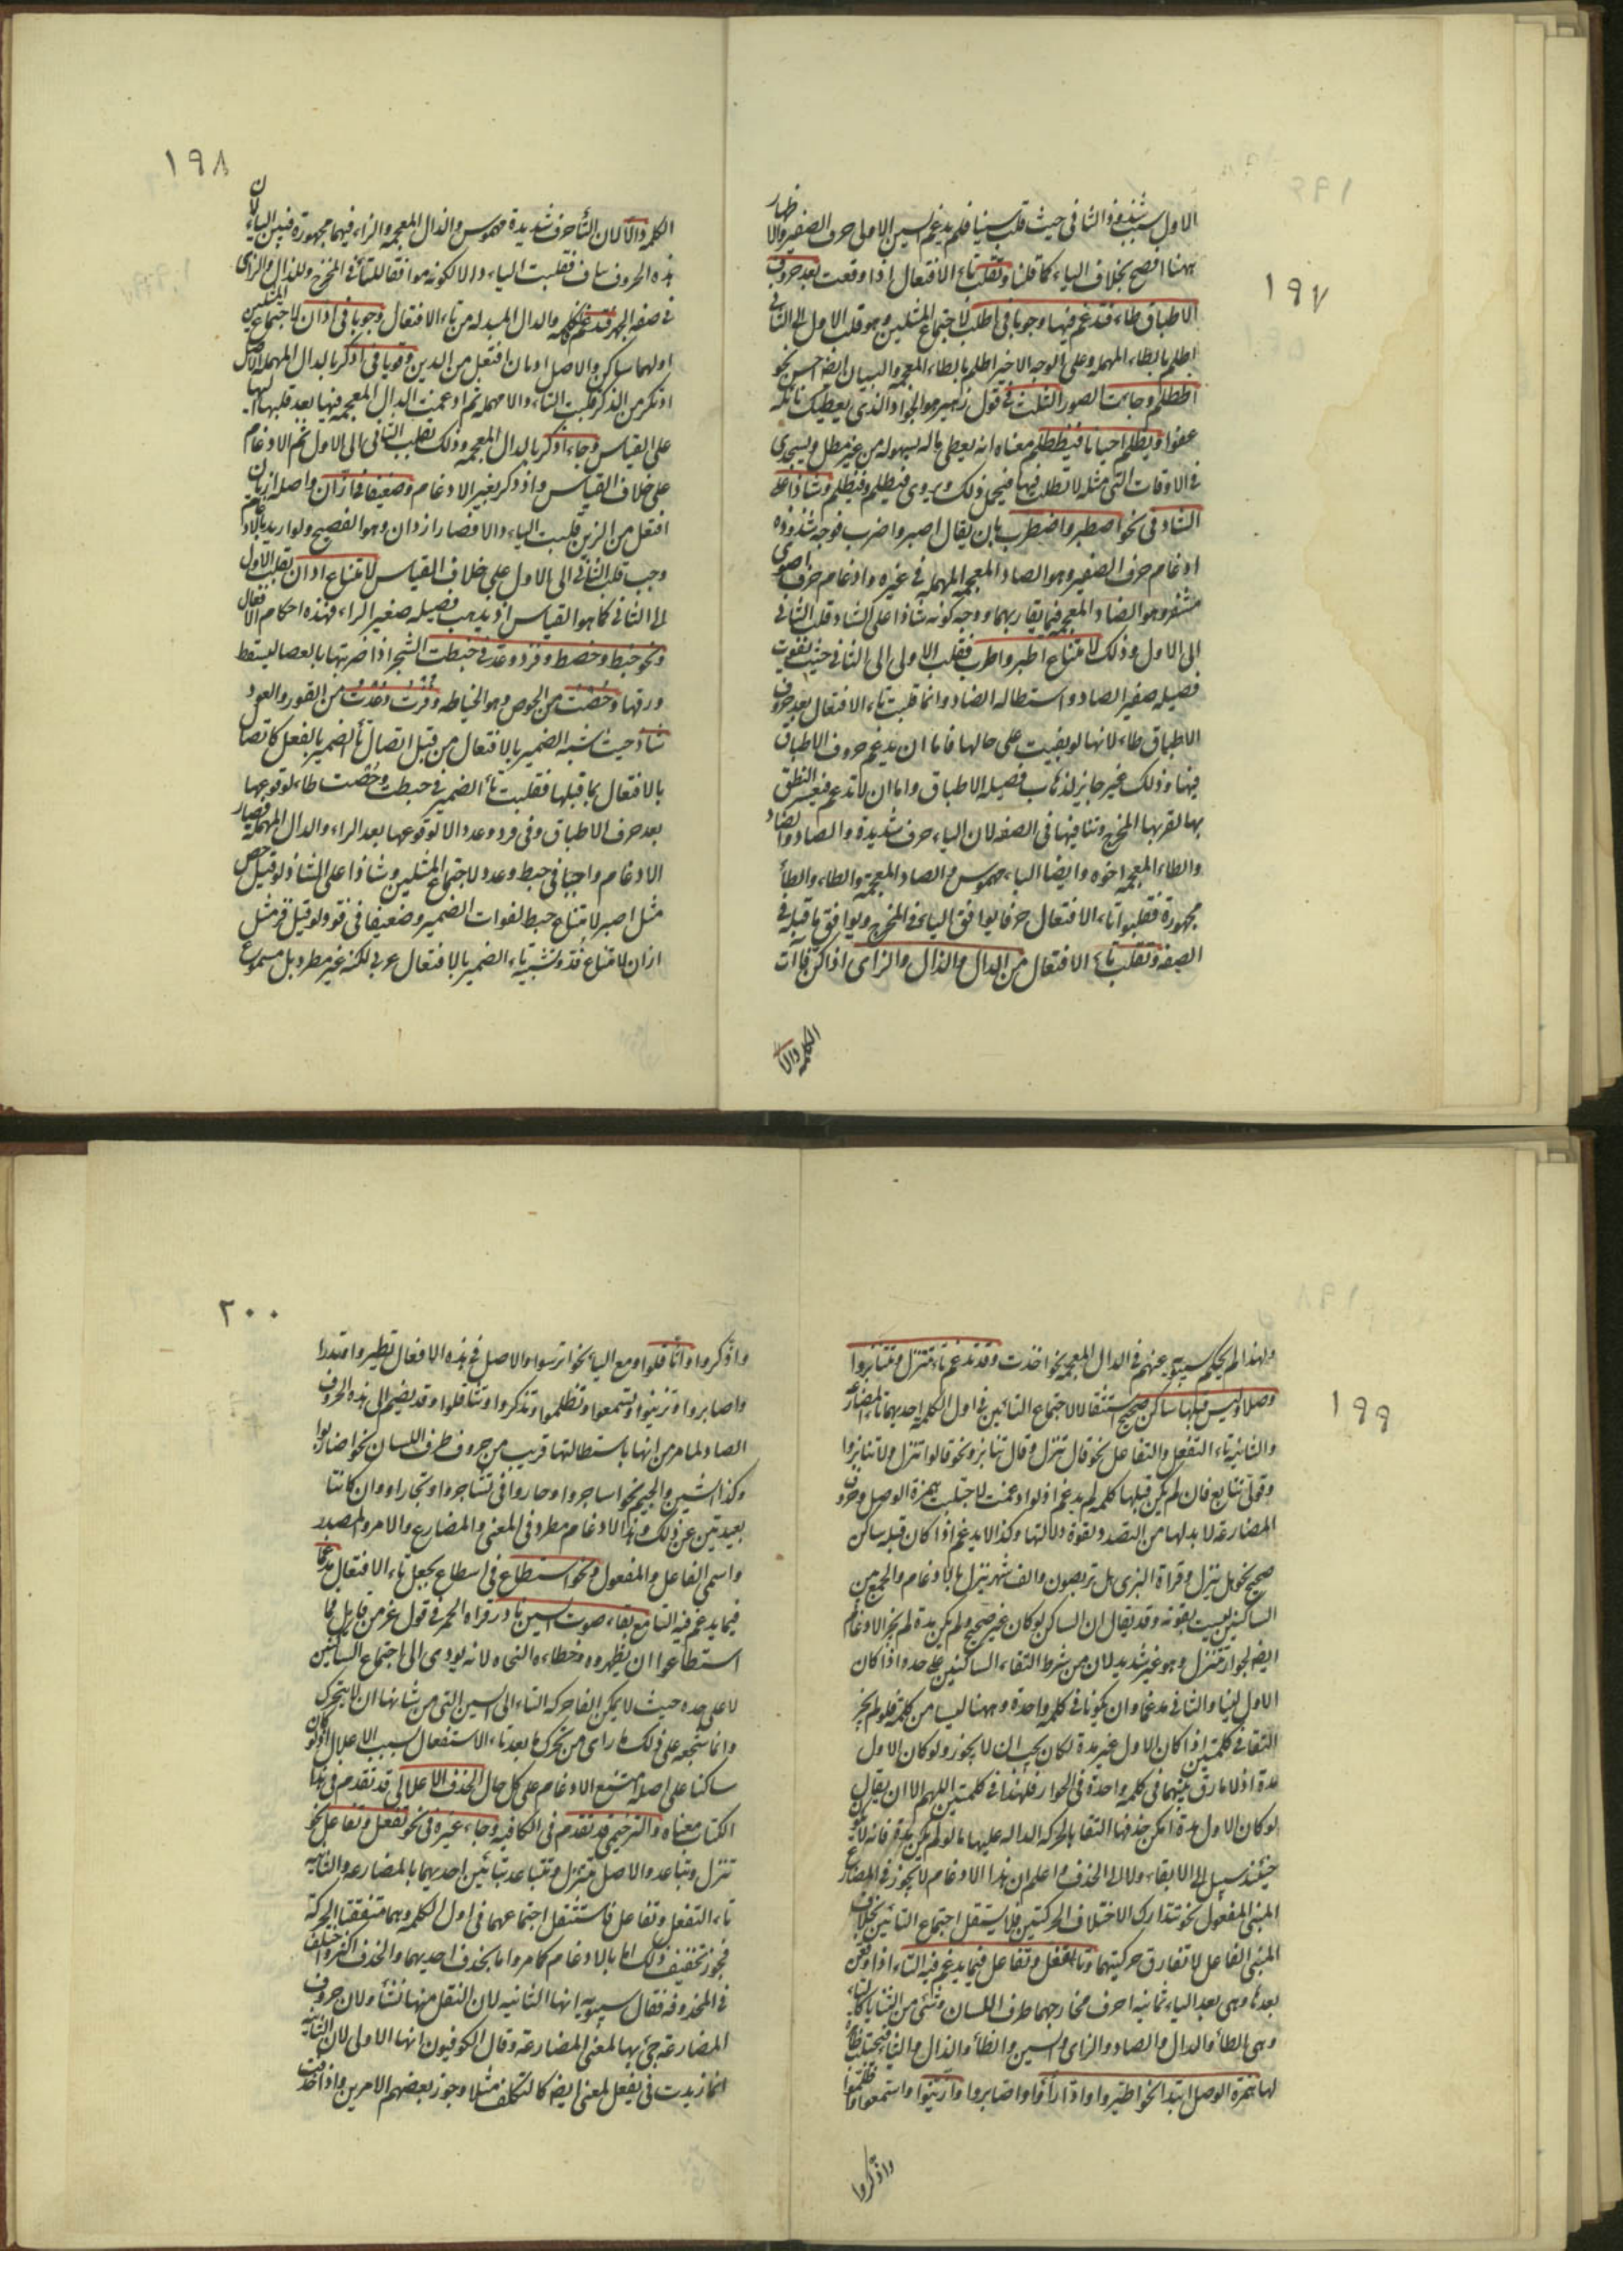 ١٩٧
الاول بسبب شذوذ الثانى حيث قلب سينا فلم يدغم السين الاولى حرف الصفير والاظهار
ههنا افصح بخلاف الياء كما قلنا وتقلب تاء الافتعال اذا وقعت بعد حروف
الاطباق طاء فتدغم فيها وجوبا فى اطلب لاجتماع المثلين وهو قلب الاول الى الثانى
اطلم بالطاء المهملة وعلى الوجه الاخير اظلم بالظاء المعجمة والبيان ايضا حسن نحو
اظطلم وجاءت الصور الثلث فى قول زهير هو الجواد الذى يعطيك نائله
عفوا ويظلم احيانا فيظطلم معناه انه يعطى ماله بسهولة من غير مطل ويستجدى
فى الاوقات التى مثله لا يطلب فيها فيحمل ذلك ويروى فيطلم وفيظلم وشاذا على
الشاذ فى نحو اصطبر واضطرب بان يقال اصبر واضرب فوجه شذوذه
ادغام حرف الصفير وهو الصاد المهملة فى غيره وادغام حرف
الى الاول وذلك لامتناع اطبر واطرب فقلب الاولى الى الثانى حيث تفوت
فضيلة صفير الصاد واستطالة الضاد وانما قلبت تاء الافتعال بعد حروف
الاطباق طاء لانها لو بقيت على حالها فاما ان يدغم حروف الاطباق
فيها وذلك غير جايز لذهاب فضيلة الاطباق واما ان لا تدغم فيعسر النطق
بها لقربها المخرج وتنافيها فى الصفة لان التاء حرف شديدة والصاد والضاد
والظاء المعجمة رخوة وايضا التاء مهموس والضاد المعجمة والطاء والظاء
مجهورة فقلبوا تاء الافتعال حرفا يوافق التاء فى المخرج ويوافق ما قبله فى
الصفة وتقلب تاء الافتعال من الدال والذال والزاى اذا كن فاآت
الكلمة دالا
١٩٨
الكلمة دالا لان التاء حرف شديدة مهموس والذال المعجمة والزاء فيهما مجهورة فبين التاء
هذه الحروف تناف فقلبت التاء دالا لكونه موافقا للتاء فى المخرج وللذال والزاى
فى صفة الجهر فتدغم فاء الكلمة والدال المبدلة من تاء الافتعال وجوبا فى ادان لاجتماع المثلين
اولهما ساكن والاصل ادتان افتعل من الدين وقويا فى ادكر بالدال المهملة الاصل
اذتكر من الذكر قلبت التاء دالا مهملة ثم ادغمت الذال المعجمة فيها بعد قلبها اليها
على القياس وجاء اذكر بالذال المعجمة وذلك بقلب الثانى الى الاول ثم الادغام
على خلاف القياس واذدكر بغير الادغام وضعيفا فى ازان واصله ازتان
افتعل من الزين قلبت التاء دالا فصار ازدان وهو الفصيح ولو اريد الادغام
وجب قلب الثانى الى الاول على خلاف القياس لامتناع ادان بقلب الاول
الى الثانى كما هو القياس اذ يذهب فضيلة صفير الزاء فهذه احكام الافتعال
ونحو خبط وحصط وفزد وعد فى خبطت الشجر اذا ضربتها بالعصا ليسقط
ورقها وحصت من الحوص وهو الخياطة وفزت وعدت من الفوز والعود
شاذ حيث شبه الضمير بالافتعال من قبل اتصال تاء الضمير بالفعل كاتصال
بالافتعال بما قبلها فقلبت تاء الضمير فى خبطت وحصت طاء لوقوعها
بعد حرف الاطباق وفى فزد وعد دالا لوقوعها بعد الزاء والدال المهملة فصار
الادغام واجبا فى خبط وعد لاجتماع المثلين وشاذا على الشاذ لو قيل حص
مثل اصبر لامتناع حبط لفوات الضمير وضعيفا فى فزد ولو قيل فز مثل
ازان لامتناع فد وتشبيه تاء الضمير بالافتعال عربى لكنه غير مطرد بل مسموع
١٩٩
ولهذا لم يحكم سيبويه عنهم فى الذال المعجمة نحو اخذت وقد تدغم تاء تتنزل وتتنابزوا
وصلا وليس قبلها ساكن صحيح استثقالا لاجتماع التائين فى اول الكلمة احديهما تاء المضارع
والثانية تاء التفعل والتفاعل نحو قال تنزل وقال تنابز ونحو قالوا تنزل ولا تنابزوا
وقولى تتابع فان لم يكن قبلها كلمة لم يدغم اذ لو ادغمت لاجتلبت همزة الوصل وحروف
المضارعة لا بد لها من التصدر لقوة دلالتها وكذا لا يدغم اذا كان قبله ساكن
صحيح نحو هل تتنزل وقراءة البزى هل تربصون والف شهر تنزل بالادغام والجمع بين
الساكنين ليست بقوية وقد يقال ان الساكن لو كان غير صحيح ولم يكن مدة لم يجز الادغام
الاول لينا والثانى مدغما وان يكونا فى كلمة واحدة وههنا ليسا من كلمة فلو لم يجز
التقاء فى كلمتين اذا كان الاول غير مدة لكان يجب ان لا يجوز ولو كان الاول
مدة اذ لا فارق بينهما فى كلمة واحدة فى الجواز فلهذا فى كلمتين اللهم الا ان يقال
لو كان الاول مدة امكن حذفها التقاء بالحركة الدالة عليها ما لو لم يكن مدة فانه لا يكون
حينئذ سبيل الى الابقاء ولا الى الحذف واعلم ان هذا الادغام لا يجوز فى المضارع
المبنى للمفعول نحو تتدارك لاختلاف الحركتين فلا يستثقل اجتماع التائين بخلاف
المبنى للفاعل لاتفاق حركتيهما وتاء تفعل وتفاعل فيما يدغم فيه التاء اذا وقعن
بعدها وهى بعد التاء ثمانية احرف مخارجها طرف اللسان وشئ من الثنايا
وهى الطاء والدال والصاد والزاى والسين والظاء والذال والثاء فيجتلب
لها همزة الوصل ابتداء نحو اطيروا وادارأوا واصابروا وازينوا واستمعوا واظلموا
واذكروا
٢٠٠
واذكروا واثاقلوا ومع التاء نحو اترسوا والاصل فى هذه الافعال تطيروا وتدارأوا
وتصابروا وتزينوا وتستمعوا وتظلموا وتذكروا وتثاقلوا وقد يضم الى هذه الحروف
الضاد لما مر من انها باستطالتها قريب من حروف طرف اللسان نحو اضاربوا
وكذا الشين والجيم نحو اشاجروا وجاروا فى تشاجروا وتجاراوا وان كانتا
بعيدتين عن ذلك وهذا الادغام مطرد فى المعنى والمضارع والامر والمصدر
واسمى الفاعل والمفعول ونحو استطاع فى اسطاع يجعل تاء الافتعال مدغما
فيما يدغم فيه التاء مع بقاء صوت السين نادر قراه الحمزة فى قوله عز من قايل فما
استطاعوا ان يظهروه وخطاءه النحاة لانه يودى الى اجتماع الساكنين
لا على حده حيث لا يمكن القاء حركة التاء الى السين التى من شانها ان لا يتحرك
وانما شجعه على ذلك ما راى من تحرك ما بعد تاء الاستفعال بسبب الاعلال اذ لو كان
ساكنا على اصله امتنع الادغام على كل حال الحذف الاعلالى قد تقدم فى هذا
الكتاب معناه والترخيمى قد تقدم فى الكافية وجاء غيره فى نحو تفعل وتفاعل نحو
تنزل وتباعد والاصل تتنزل وتتباعد بتائين احديهما بالمضارعة والثانية
تاء التفعل وتفاعل فاستثقل اجتماعهما فى اول الكلمة وهما متفقتا الحركة
فجوز تخفيف ذلك اما بالادغام كما مر واما بحذف احديهما والحذف اكثر واختلف
فى المحذوفة فقال سيبويه انها الثانية لان الثقل منها نشأ ولان حروف
المضارعة جئ بها لمعنى المضارعة وقال الكوفيون انها الاولى لان الثانية
انما زيدت فى تفعل لمعنى ايضا كالتكلف مثلا وجوز بعضهم الامرين واذا حذفت